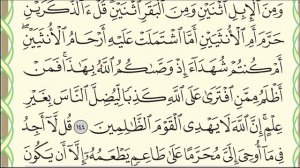 وَمِنَ ٱلۡإِبِلِ ٱثۡنَيۡنِ وَمِنَ ٱلۡبَقَرِ ٱثۡنَيۡنِۗ قُلۡ ءَآلذَّكَرَيۡنِ
حَرَّمَ أَمِ ٱلۡأُنثَيَيۡنِ أَمَّا ٱشۡتَمَلَتۡ عَلَيۡهِ أَرۡحَامُ ٱلۡأُنثَيَيۡنِۖ
أَمۡ كُنتُمۡ شُهَدَآءَ إِذۡ وَصَّىٰكُمُ ٱللَّهُ بِهَٰذَاۚ فَمَنۡ
أَظۡلَمُ مِمَّنِ ٱفۡتَرَىٰ عَلَى ٱللَّهِ كَذِبٗا لِّيُضِلَّ ٱلنَّاسَ بِغَيۡرِ
عِلۡمٍۚ إِنَّ ٱللَّهَ لَا يَهۡدِي ٱلۡقَوۡمَ ٱلظَّٰلِمِينَ ١٤٤ قُل لَّآ أَجِدُ
فِي مَآ أُوحِيَ إِلَيَّ مُحَرَّمًا عَلَىٰ طَاعِمٖ يَطۡعَمُهُۥٓ إِلَّآ أَن يَكُونَ